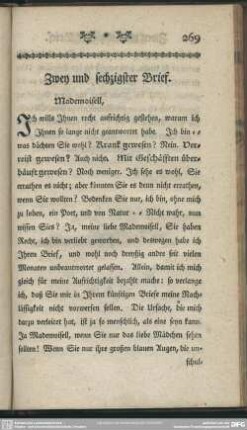 269
Zwey und sechzigster Brief.
Mademoisell,
Ich wills Ihnen recht aufrichtig gestehen, warum ich
Ihnen so lange nicht geantwortet habe. Ich bin - -
was dächten Sie wohl? Krank gewesen? Nein. Ver-
reist gewesen? Auch nicht. Mit Geschäfften über-
häuft gewesen? Noch weniger. Ich sehe es wohl, Sie
errathen es nicht; aber könnten Sie es denn nicht errathen,
wenn Sie wollten? Bedenken Sie nur, ich bin, ohne mich
zu loben, ein Poet, und von Natur - - Nicht wahr, nun
wissen Sies? Ja, meine liebe Mademoisell, Sie haben
Recht, ich bin verliebt geworden, und deswegen habe ich
Ihren Brief, und wohl noch dreyßig andre seit vielen
Monaten unbeantwortet gelassen. Allein, damit ich mich
gleich für meine Aufrichtigkeit bezahlt mache: so verlange
ich, daß Sie mir in Ihrem künftigen Briefe meine Nach-
läßigkeit nicht vorwerfen sollen. Die Ursache, die mich
darzu verleitet hat, ist ja so menschlich, als eine seyn kann.
Ja Mademoisell, wenn Sie nur das liebe Mädchen sehen
sollten! Wenn Sie nur ihre großen blauen Augen, die un-
schul-